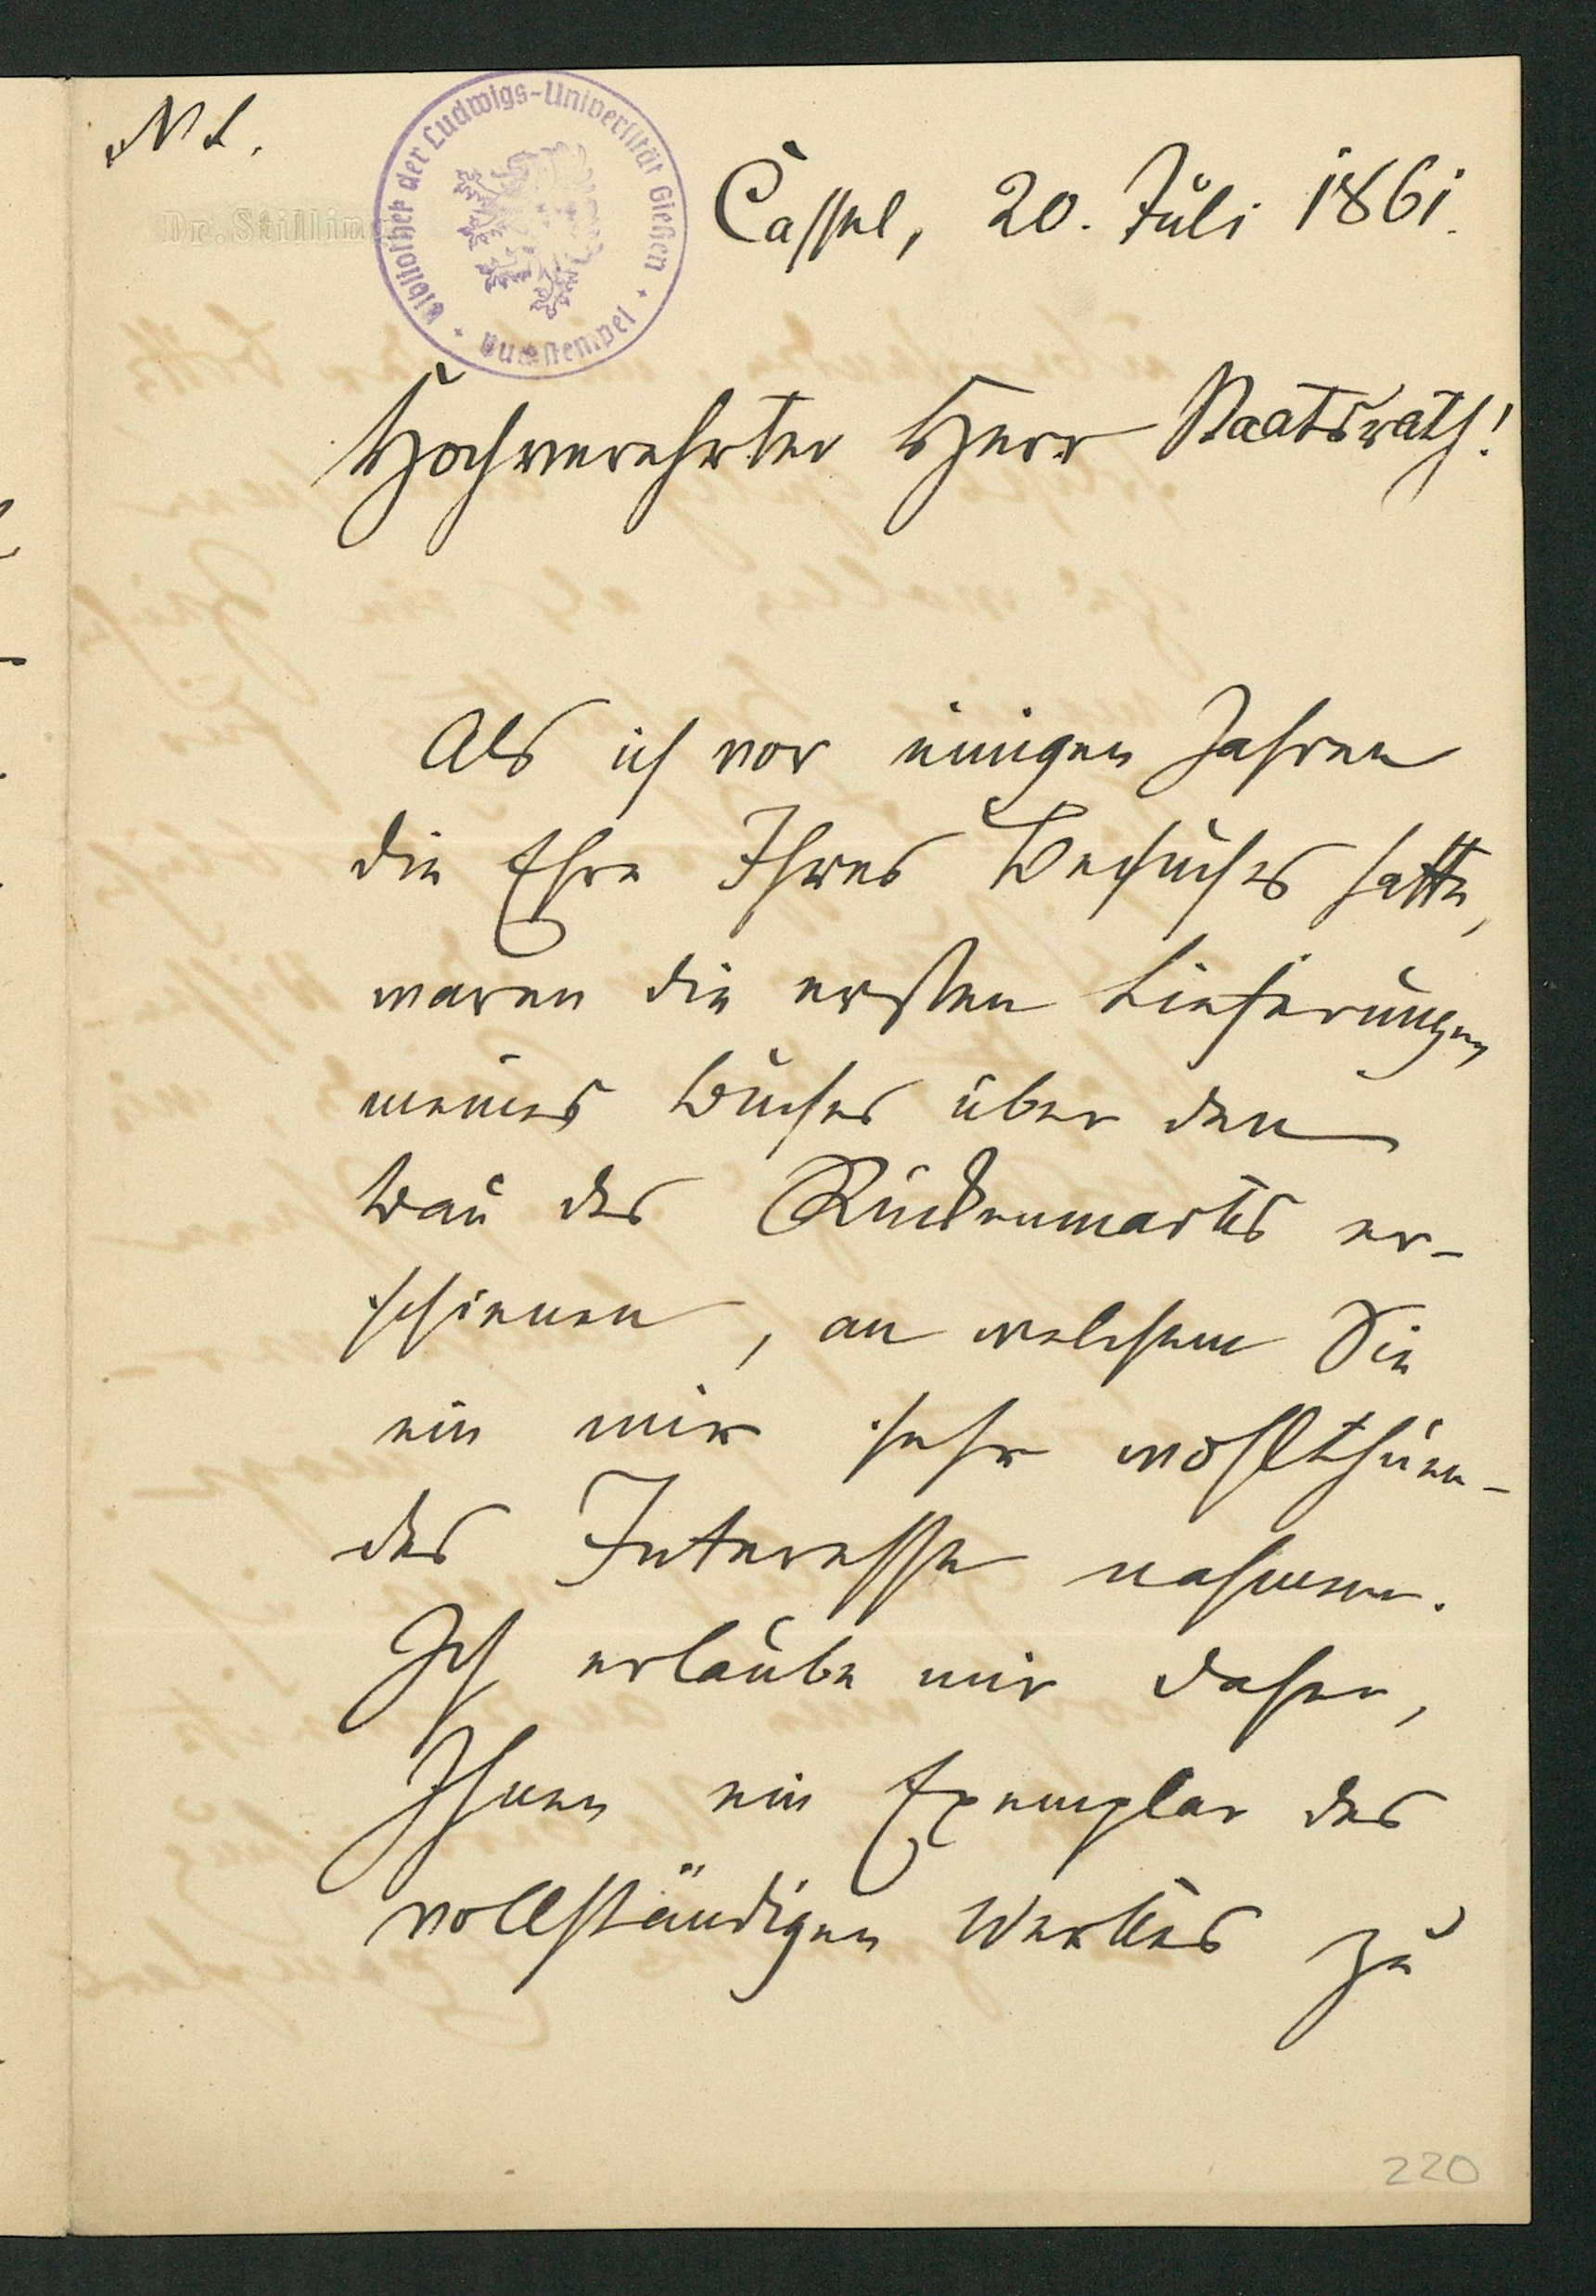 N 1.
Dr. Stillin
Bibliothek der Ludwigs-Universität Gießen
Buchstempel
Cassel, 20. Juli 1861.
Hochverehrter Herr Staatsrath!
Als ich vor einigen Jahren
die Ehre Ihres Besuches hatte,
waren die ersten Lieferungen
meines Buches über den
Bau des Rückenmarks er-
schienen, an welchem Sie
ein mir sehr wohlthuen-
des Interesse nahmen.
Ich erlaube mir daher,
Ihnen ein Exemplar des
vollständigen Werkes zu
220